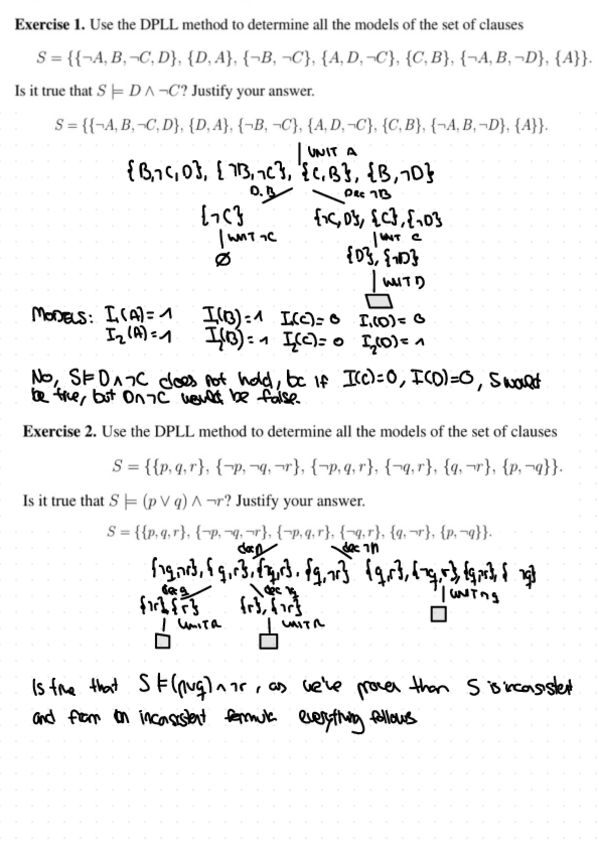 Exercise 1. Use the DPLL method to determine all the models of the set of clauses
S = {{¬A, B, ¬C, D}, {D, A}, {¬B, ¬C}, {A, D, ¬C}, {C, B}, {¬A, B, ¬D}, {A}}.
Is it true that S ⊨ D ∧ ¬C? Justify your answer.
S = {{¬A, B, ¬C, D}, {D, A}, {¬B, ¬C}, {A, D, ¬C}, {C, B}, {¬A, B, ¬D}, {A}}.
UNIT A
{B,¬C,D}, {¬B,¬C}, {C,B}, {B,¬D}
D.B DEC ¬B
{¬C} {¬C,D}, {C}, {¬D}
UNIT ¬C UNIT C
∅ {D}, {¬D}
UNIT D
□
MODELS: I₁(A)=1 I₁(B)=1 I₁(C)=0 I₁(D)=0
I₂(A)=1 I₂(B)=1 I₂(C)=0 I₂(D)=1
No, S⊨D∧¬C does not hold, bc if I(C)=0, I(D)=0, S would
be true, but D∧¬C would be false.
Exercise 2. Use the DPLL method to determine all the models of the set of clauses
S = {{p, q, r}, {¬p, ¬q, ¬r}, {¬p, q, r}, {¬q, r}, {q, ¬r}, {p, ¬q}}.
Is it true that S ⊨ (p ∨ q) ∧ ¬r? Justify your answer.
S = {{p, q, r}, {¬p, ¬q, ¬r}, {¬p, q, r}, {¬q, r}, {q, ¬r}, {p, ¬q}}.
dec p dec ¬p
{¬q,¬r}, {q,r}, {¬q,r}, {q,¬r} {q,r}, {¬q,r}, {q,¬r}, {¬q}
dec q dec ¬q UNIT ¬q
{¬r}, {r} {r}, {¬r} □
UNIT R UNIT R
□ □
Is true that S ⊨ (p∨q)∧¬r, as we've proven than S is inconsistent
and from an inconsistent formula everything follows